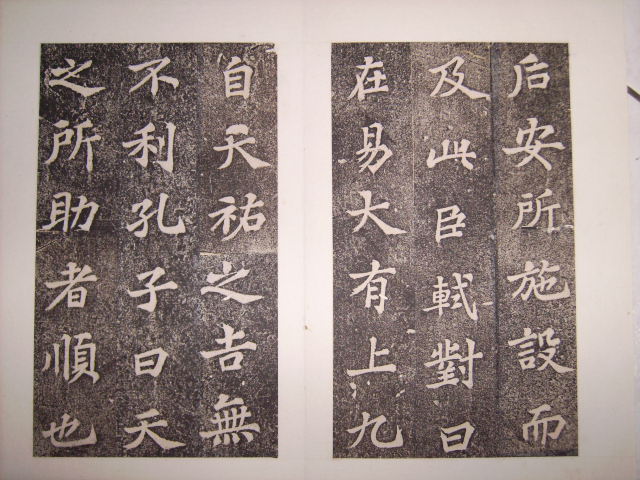 后安所施設而
及此臣軾對曰
在易大有上九
自天祐之吉無
不利孔子曰天
之所助者順也